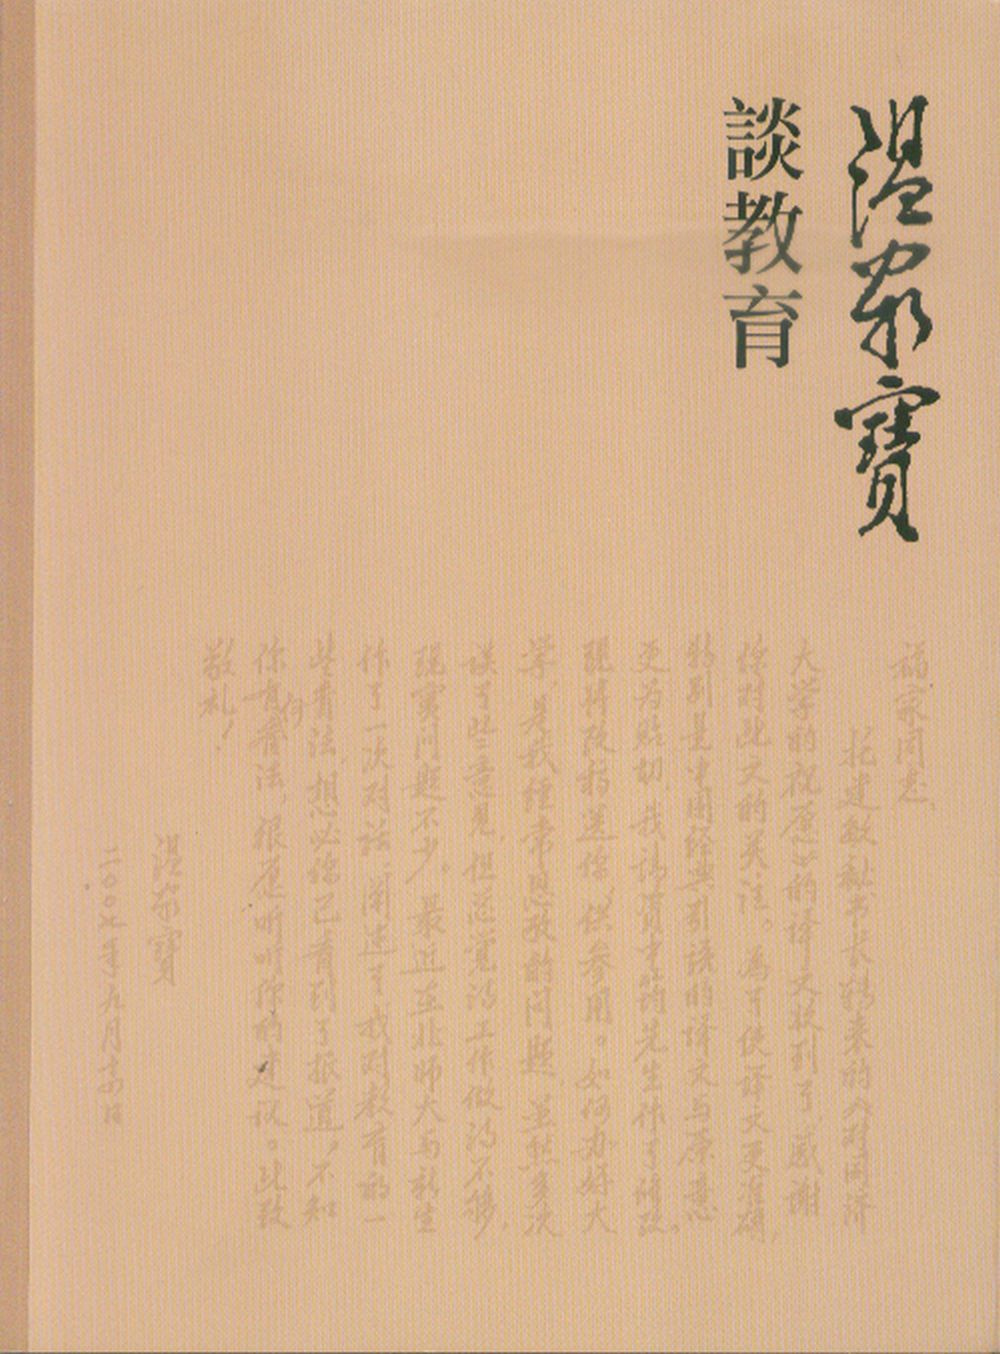 温家寶
談教育
福家同志：
托建敏献书长转来的《对同济
大学的祝愿》的译文收到了，感谢
你对此文的关注。为了使译文更准确，
特别是中国经典引语的译文与原意
更为贴切，我请资中筠先生作了修改。
现将改稿送你，供参用。如何办好大
学，是我经常思考的问题，虽然多次
谈了些意见，但总觉得工作做得不够，
现实问题不少。最近在北师大与新生
作了一次对话，阐述了我对教育的一
些看法，想必你已看到了报道。不知
你有何看法，很愿听听你的建议。此致
敬礼！
温家寶
二〇〇七年九月十五日